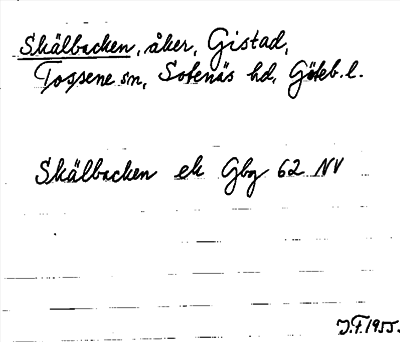 Skälbacken, åker, Gistad,
Tossene sn, Sotenäs hd, Göteb. l.
Skälbacken ek Gbg 62 NV
J.F. 1955.